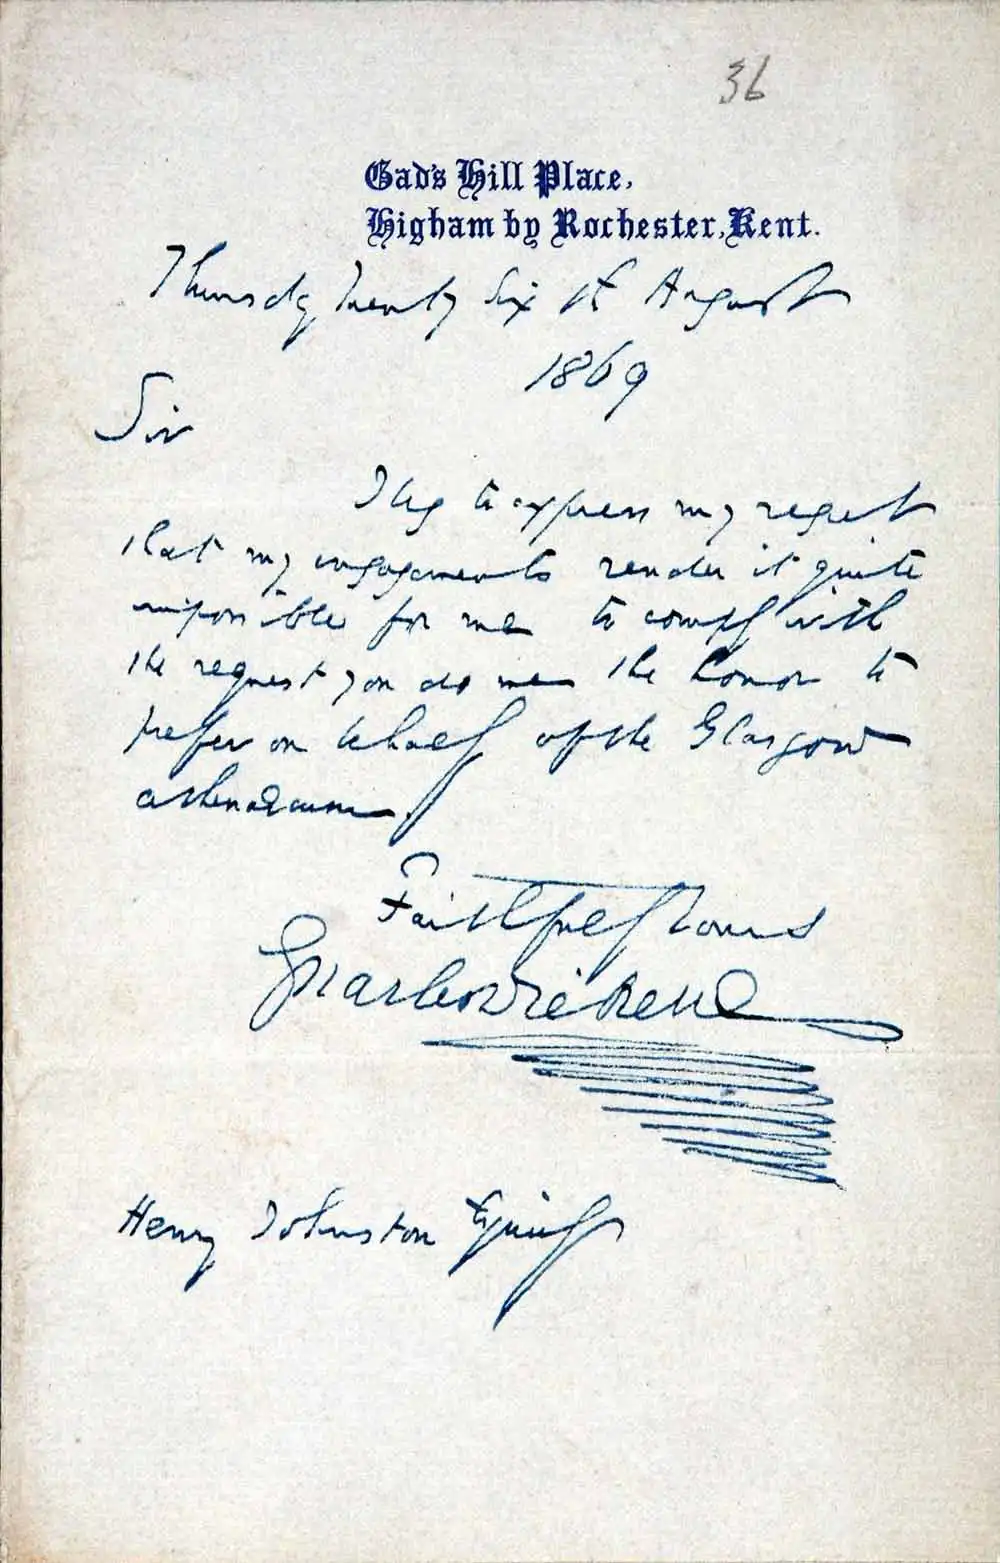 36
Gad's Hill Place,
Higham by Rochester, Kent.
Thursday Twenty Sixth August
1869
Sir
I beg to express my regret
that my engagements render it quite
impossible for me to comply with
the request you do me the honor to
prefer on behalf of the Glasgow
athenaeum.
Faithfully Yours
Charles Dickens
Henry Johnston Esquire